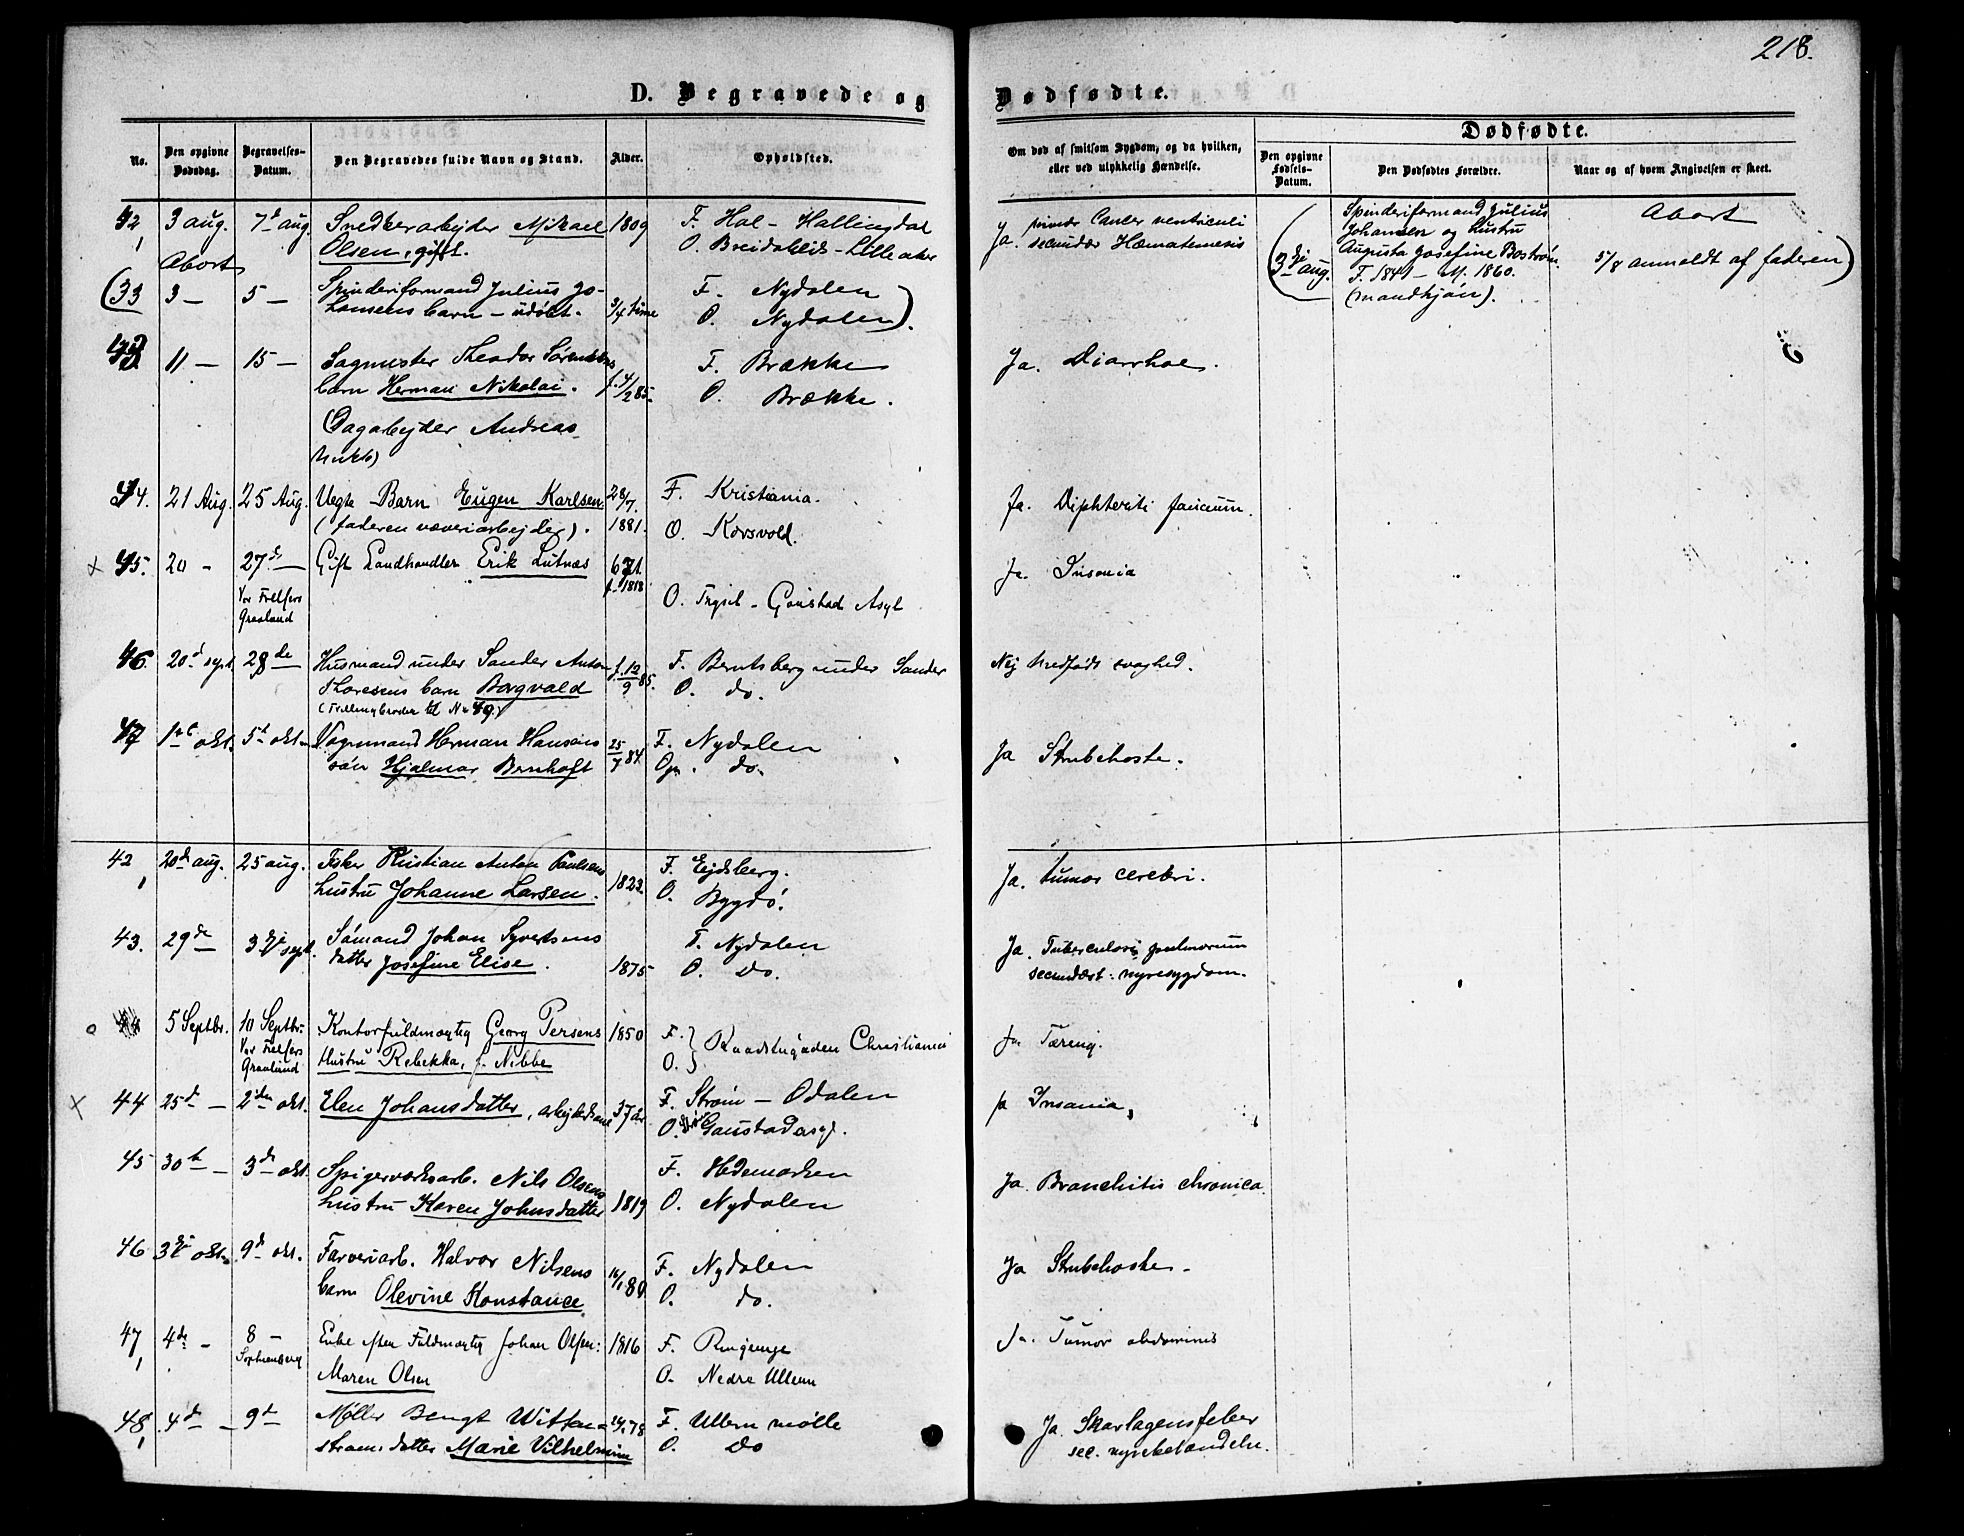 218.
D. Begravede og
Dødfødte.
No.
Den opgivne Dødsdag.
Begravelses-Datum.
Den Begravedes fulde Navn og Stand.
Alder.
Opholdssted.
Om død af smitsom Sygdom, og da hvilken,
eller ved ulykkelig Hændelse.
Dødfødte.
Den opgivne Fødsels-Datum.
Den Dødfødtes Forældre.
Naar og af hvem Angivelsen er skeet.
42, 3 aug. 7de aug. Snedkerarbejder Mikael 1809 F. Hol - Hallingdal
Olsen, gift. O. Breidablik - Lilleaker
Ja. primær Cancer ventriculi
secundær Hæmatemesis
Abort
(33 3 — 5 — Spinderiformand Julius Jo-
hansens barn - udøbt. 3/4 time F. Nydalen
O. Nydalen).
(3die aug. Spinderiformand Julius
Johansen og hustru
Augusta Josefine Boström.
F. 1841 - M. 1860.
(mandkjön).
Abort
5/8 anmeldt af faderen)
43 11 — 15 — Sagmester Theodor Sørensens
barn Herman Nikolai. f. 4/2 85. F. Brække
O. Brække.
Ja. Diarrhoe.
(Dagarbejder Andreas
44. 21 Aug. 25 Aug. Uegte Barn Eugen Karlsen 28/7. 1881. F. Kristiania.
(faderen væveriarbejder). O. Korsvold.
Ja. Diphteriti faucium.
x 45. 20 - 27de — Gift Landhandler Erik Lutnæs 67 f. 1818
Vor Frelsers
Gravlund
O. Trysil - Gaustad Asyl
Ja. Insania
46 20de sept. 28de — Husmand under Sander Anton f. 12/9 85. F. Berntsberg under Sander
Thoresens barn Borgvald O. do.
(Trillingbroder til No 49)
Nej Medfødt svaghed.
47 1ste okt. 5te okt. Vognmand Herman Hansens 25/7 84. F. Nydalen
sön Hjalmar Bernhoft Op. do.
Ja Strubehoste.
42, 20de aug. 25 aug. Fisker Kristian Anton Paulsens 1822. F. Ejdsberg.
hustru Johanne Larsen. O. Bygdö.
Ja. tumor cerebri.
43. 29de — 3die sept. Sömand Johan Syvertsens F. Nydalen
datter Josefine Elise. 1875 O. do.
Ja. Tuberculosis pulmonum
secundært: nyresygdom.
o 5 Septbr. 10 Septbr. Kontorfuldmægtig Georg Persens 1850 F. } Raadstugaden Christiania
Vor Frelsers
Gravlund
Hustru Rebekka, f. Nibbe O.
Ja Tæring.
x 44 25de — 2den okt. Elen Johansdatter, arbejdsane 37 år F. Strøm - Odalen
O. Gaustadasyl.
ja Insania,
45 30te — 3de okt. Spigerværksarb. Nils Olsens F. Hedemarken
hustru Karen Johnsdatter 1819 O. Nydalen
Ja Bronchitis chronica.
46 3die okt. 9de okt. Farveriarb. Halvor Nilsens F. Nydalen
barn Olevine Konstance O. do.
Ja Strubehoste.
47, 4de - 8 - Enke efter Fuldmægtig Johan Olsen: 1816 F. Ringerige
Sophienberg
Maren Olsen O. Nedre Ullern
Ja. Tumor abdominis
48, 4de — 9de Møller Bengt Witten= F. Ullern mølle
stroems datter Marie Vilhelmine O. do
Ja. Skarlagensfeber
sec. nyrebetændelse.